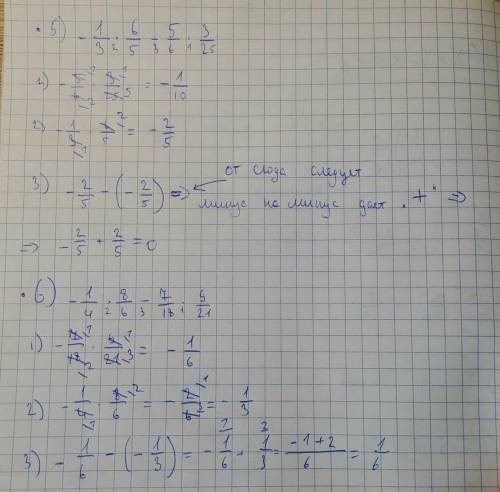 5) -1/3 · 6/5 - 5/6 · 3/25
1) · = -1/10
2) · = -2/5
3) -2/5 - (-2/5) => от сюда следует
минус на минус дает "+" =>
=> -2/5 + 2/5 = 0
6) -1/4 · 8/6 - 7/18 · 9/21
1) · = -1/6
2) · = = -1/3
3) -1/6 - (-1/3) = -1/6 + 1/3 = (-1+2)/6 = 1/6